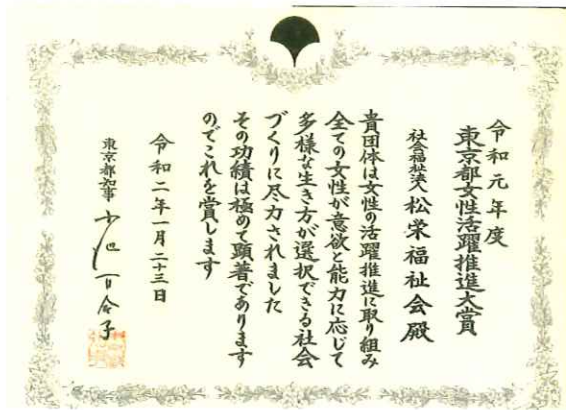 令和元年度
東京都女性活躍推進大賞
社会福祉法人 松栄福祉会殿
貴団体は女性の活躍推進に取り組み
全ての女性が意欲と能力に応じて
多様な生き方が選択できる社会
づくりに尽力されました
その功績は極めて顕著であります
のでこれを賞します
令和二年一月二十三日
東京都知事 小池百合子